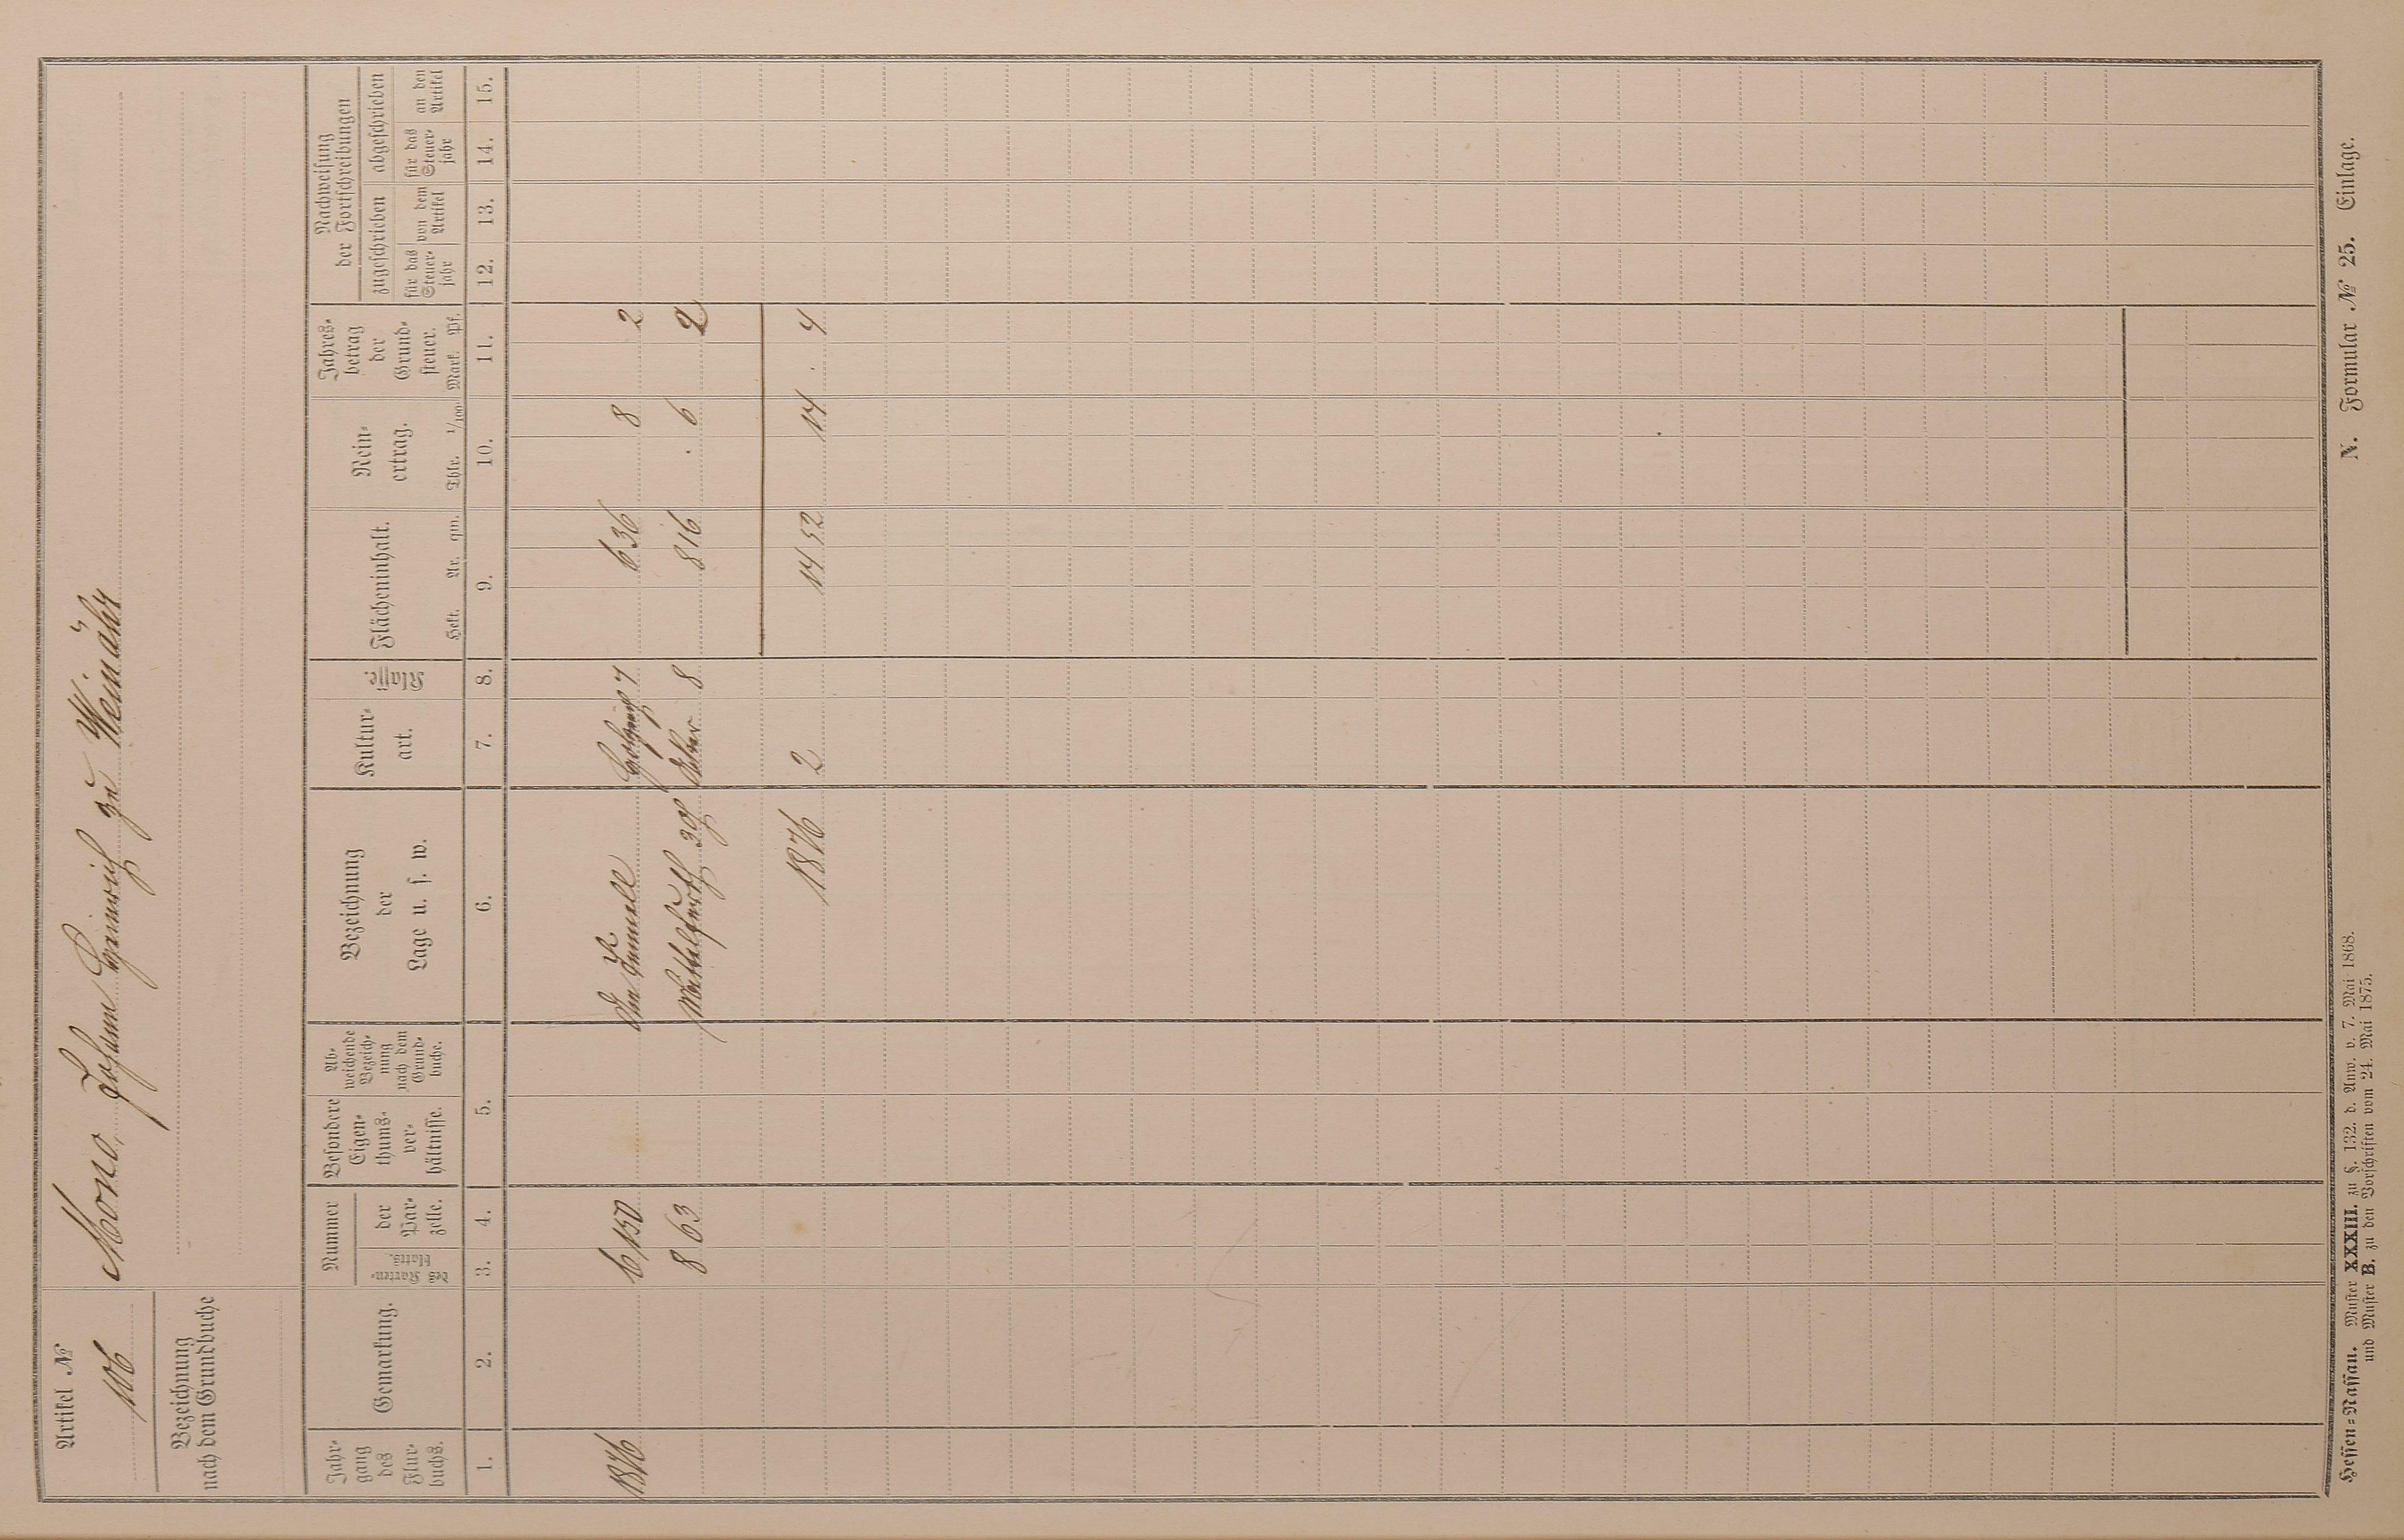 Artikel №
106
Bezeichnung
nach dem Grundbuche
Mono, Johann Heinrich zu Weinähr
Jahr-
gang
des
Flur-
buchs.
Gemarkung.
Nummer
des Karten-
blatts.
der
Par-
zelle.
Besondere
Eigen-
thums-
ver-
hältnisse.
Ab-
weichende
Bezeich-
nung
nach dem
Grund-
buche.
Bezeichnung
der
Lage u. s. w.
Kultur-
art.
Klasse.
Flächeninhalt.
Hekt. Ar. qm.
Rein-
ertrag.
Thlr. 1/100.
Jahres-
betrag
der
Grund-
steuer.
Mark. Pf.
Nachweisung
der Fortschreibungen
zugeschrieben
abgeschrieben
für das
Steuer-
jahr
von dem
Artikel
für das
Steuer-
jahr
an den
Artikel
1. 2. 3. 4. 5. 6. 7. 8. 9. 10. 11. 12. 13. 14. 15.
1876 6 150 Holzung 7 6 36 8 2
8 63 Acker 8 8 16 . 6 2
1876 2 14 52 14 . 4
Hessen-Nassau. Muster XXXIII. zu §. 132. d. Anw. v. 7. Mai 1868.
und Muster B. zu den Vorschriften vom 24. Mai 1875.
N. Formular № 25. Einlage.